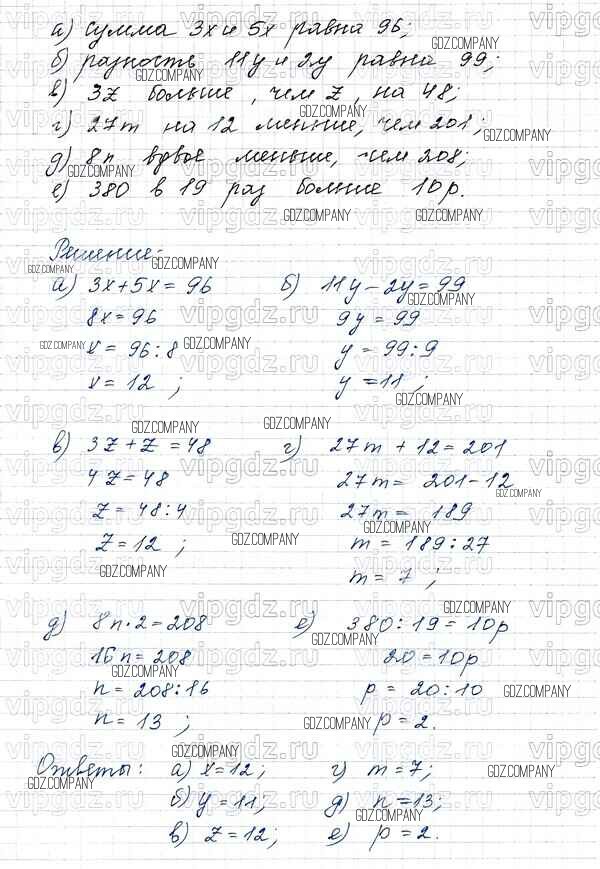 а) сумма 3x и 5x равна 96;
б) разность 11y и 2y равна 99;
в) 3z больше, чем z, на 48;
г) 27m на 12 меньше, чем 201;
д) 8n вдвое меньше, чем 208;
е) 380 в 19 раз больше 10p.
Решение:
а) 3x+5x=96 б) 11y-2y=99
8x=96 9y=99
x=96:8 y=99:9
x=12; y=11;
в) 3z+z=48 г) 27m+12=201
4z=48 27m=201-12
z=48:4 27m=189
z=12; m=189:27
m=7;
д) 8n·2=208 е) 380:19=10p
16n=208 20=10p
n=208:16 p=20:10
n=13; p=2.
Ответы: а) x=12; г) m=7;
б) y=11; д) n=13;
в) z=12; е) p=2.
vipgdz.ru
GDZ.COMPANY